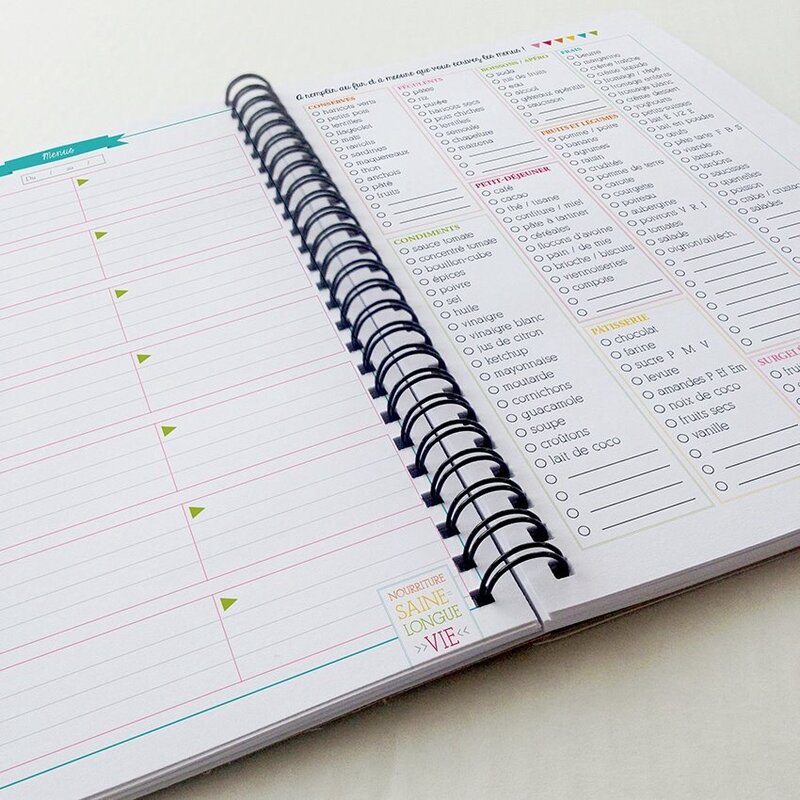 Menus
Du / au /
NOURRITURE
SAINE =
LONGUE
>> VIE <<
A remplir au fur et à mesure que vous écrivez les menus !
CONSERVES
haricots verts
petits pois
lentilles
flageolet
maïs
raviolis
sardines
maquereaux
thon
anchois
pâté
fruits
CONDIMENTS
sauce tomate
concentré tomate
bouillon-cube
épices
poivre
sel
huile
vinaigre
vinaigre blanc
jus de citron
ketchup
mayonnaise
moutarde
cornichons
guacamole
soupe
croûtons
lait de coco
FÉCULENTS
pâtes
riz
purée
haricots secs
pois chiches
lentilles
semoule
chapelure
maïzena
PETIT-DÉJEUNER
café
cacao
thé / tisane
confiture / miel
pâte à tartiner
céréales
flocons d'avoine
pain / de mie
brioche / biscuits
viennoiseries
compote
PÂTISSERIE
chocolat
farine
sucre P M V
levure
amandes P Ef Em
noix de coco
fruits secs
vanille
BOISSONS / APÉRO
soda
jus de fruits
eau
alcool
gâteaux apéritifs
saucisson
FRUITS ET LÉGUMES
pomme / poire
banane
agrumes
raisin
crudités
pomme de terre
carotte
courgette
poireau
aubergine
poivrons V R J
tomates
salade
oignon/ail/éch.
FRAIS
beurre
margarine
crème fraîche
crème liquide
fromage / râpé
fromage enfants
fromage blanc
crème dessert
yoghurts
petits-suisses
lait E 1/2 E
lait en poudre
oeufs
pâte tarte F B S
viande
jambon
lardons
saucisses
quenelles
poisson
crabe /
salades
SURGELÉ